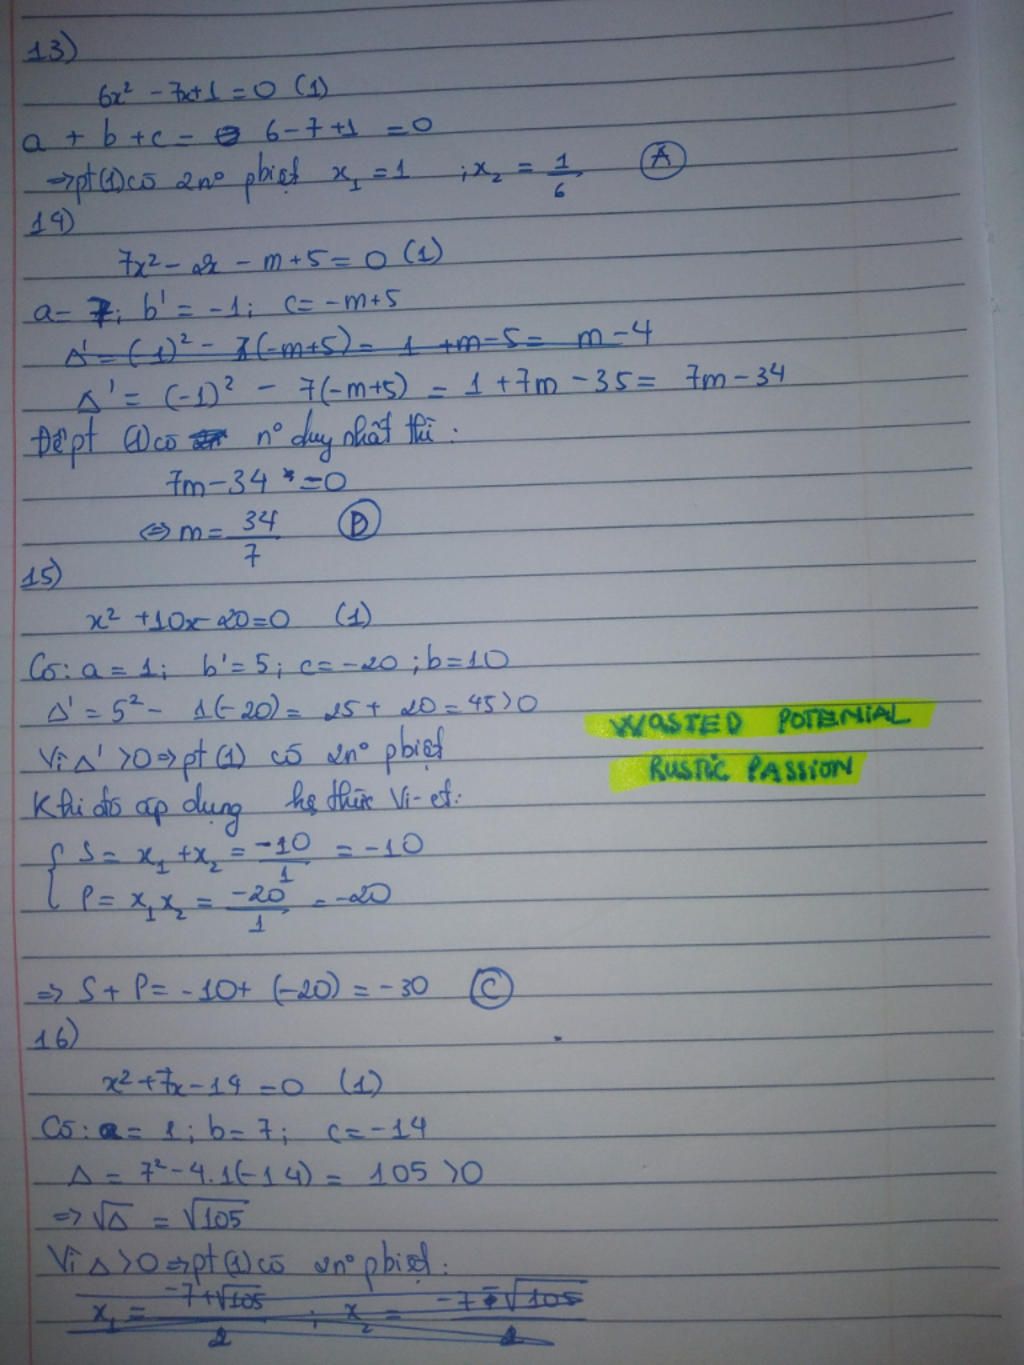 13)
6x² - 7x+1 = 0 (1)
a + b + c = 6 - 7 + 1 = 0
⇒ pt(1) có 2n° pbiệt x₁ = 1 ; x₂ = 1/6 (A)
14)
7x² - 2x - m + 5 = 0 (1)
a = 7; b' = -1; c = -m+5
Δ' = (-1)² - 7(-m+5) = 1 + m - 5 = m - 4
Δ' = (-1)² - 7(-m+5) = 1 + 7m - 35 = 7m - 34
Để pt (1) có n° duy nhất thì :
7m - 34 = 0
⇔ m = 34/7 (B)
15)
x² + 10x - 20 = 0 (1)
Có: a = 1; b' = 5; c = -20 ; b = 10
Δ' = 5² - 1(-20) = 25 + 20 = 45 > 0
Vì Δ' > 0 ⇒ pt (1) có 2n° pbiệt
WASTED POTENIAL
RUSTIC PASSION
Khi đó áp dụng hệ thức Vi-et:
{ S = x₁ + x₂ = -10/1 = -10
P = x₁x₂ = -20/1 = -20
⇒ S + P = -10 + (-20) = -30 (C)
16)
x² + 7x - 14 = 0 (1)
Có: a = 1; b = 7; c = -14
Δ = 7² - 4.1(-14) = 105 > 0
⇒ √Δ = √105
Vì Δ > 0 ⇒ pt (1) có 2n° pbiệt:
x₁ = -7+√105/2 ; x₂ = -7-√105/2